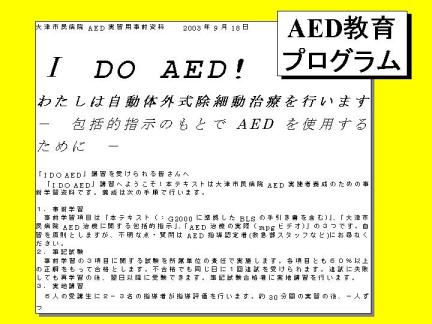 大津市民病院 AED 実習用事前資料　2003年9月18日
AED教育
プログラム
I DO AED!
わたしは自動体外式除細動治療を行います
－ 包括的指示のもとで AED を使用する
ために －
「I DO AED」講習を受けられる皆さんへ
「I DO AED」講習へようこそ！本テキストは大津市民病院 AED 実施者養成のための事
前学習資料です。養成は次の手順で行います。
1．事前学習
事前学習項目は「本テキスト（：G2000 に準拠した BLS の手引き書を含む）」、「大津市
民病院 AED 治療に関する包括的指示」、「AED 治療の実際（mpg ビデオ）」の3つです。自
習を原則としますが、不明な点・質問は AED 指導認定者（救急部スタッフなど）にお尋ねく
ださい。
2．筆記試験
事前学習の3項目に関する試験を所属単位の責任で実施します。各項目とも60％以上
の正解をもって合格とします。不合格でも同じ日に1回追試を受けられます。追試に失敗
しても再学習の後、翌日以降に受験できます。筆記試験合格者に実地講習を行います。
3．実地講習
6人の受講生に2－3名の指導者が指導評価を行います。約30分間の実習の後、一人ず
つ